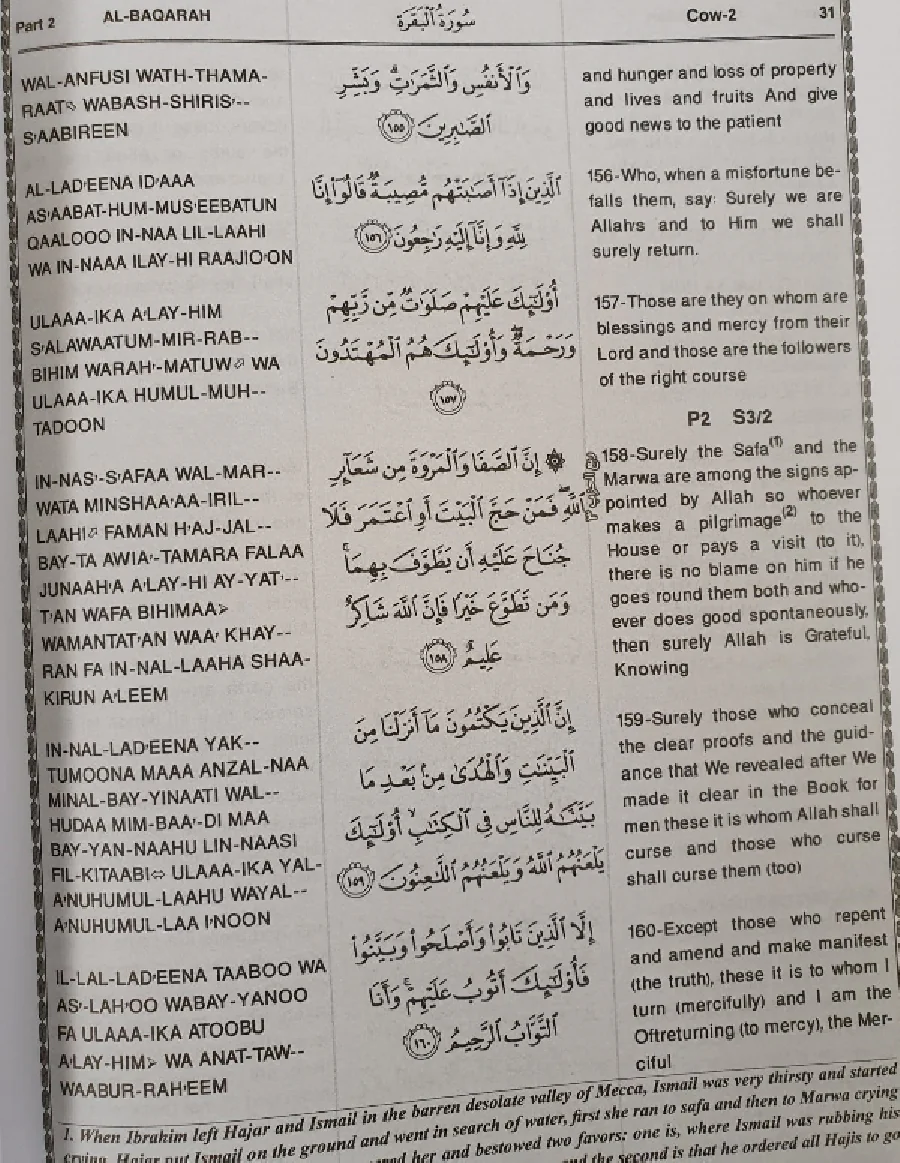 Part 2 AL-BAQARAH سُورَةُ الْبَقَرَة Cow-2 31
WAL-ANFUSI WATH-THAMA-
RAAT⬄ WABASH-SHIRIS'--
S'AABIREEN
AL-LAD'EENA ID'AAA
AS'AABAT-HUM-MUS'EEBATUN
QAALOOO IN-NAA LIL-LAAHI
WA IN-NAAA ILAY-HI RAAJIO'ON
ULAAA-IKA A'LAY-HIM
S'ALAWAATUM-MIR-RAB--
BIHIM WARAH'-MATUW⬄ WA
ULAAA-IKA HUMUL-MUH--
TADOON
IN-NAS'-S'AFAA WAL-MAR--
WATA MINSHAA'AA-IRIL--
LAAHI⬄ FAMAN H'AJ-JAL--
BAY-TA AWIA'-TAMARA FALAA
JUNAAH'A A'LAY-HI AY-YAT'--
T'AN WAFA BIHIMAA>
WAMANTAT'AN WAA' KHAY--
RAN FA IN-NAL-LAAHA SHAA-
KIRUN A'LEEM
IN-NAL-LAD'EENA YAK--
TUMOONA MAAA ANZAL-NAA
MINAL-BAY-YINAATI WAL--
HUDAA MIM-BAA'-DI MAA
BAY-YAN-NAAHU LIN-NAASI
FIL-KITAABI⬄ ULAAA-IKA YAL-
A'NUHUMUL-LAAHU WAYAL--
A'NUHUMUL-LAA I'NOON
IL-LAL-LAD'EENA TAABOO WA
AS'-LAH'OO WABAY-YANOO
FA ULAAA-IKA ATOOBU
A'LAY-HIM> WA ANAT-TAW--
WAABUR-RAH'EEM
وَالْأَنفُسِ وَالثَّمَرَٰتِ ۗ وَبَشِّرِ
الصَّٰبِرِينَ ١٥٥
الَّذِينَ إِذَآ أَصَٰبَتْهُم مُّصِيبَةٌ قَالُوٓا۟ إِنَّا
لِلَّهِ وَإِنَّآ إِلَيْهِ رَٰجِعُونَ ١٥٦
أُو۟لَٰٓئِكَ عَلَيْهِمْ صَلَوَٰتٌ مِّن رَّبِّهِمْ
وَرَحْمَةٌ ۖ وَأُو۟لَٰٓئِكَ هُمُ الْمُهْتَدُونَ
١٥٧
۞ إِنَّ الصَّفَا وَالْمَرْوَةَ مِن شَعَآئِرِ
اللَّهِ ۖ فَمَنْ حَجَّ الْبَيْتَ أَوِ اعْتَمَرَ فَلَا
جُنَاحَ عَلَيْهِ أَن يَطَّوَّفَ بِهِمَا ۚ
وَمَن تَطَوَّعَ خَيْرًا فَإِنَّ اللَّهَ شَاكِرٌ
عَلِيمٌ ١٥٨
إِنَّ الَّذِينَ يَكْتُمُونَ مَآ أَنزَلْنَا مِنَ
الْبَيِّنَٰتِ وَالْهُدَىٰ مِنۢ بَعْدِ مَا
بَيَّنَّٰهُ لِلنَّاسِ فِي الْكِتَٰبِ ۙ أُو۟لَٰٓئِكَ
يَلْعَنُهُمُ اللَّهُ وَيَلْعَنُهُمُ اللَّٰعِنُونَ ١٥٩
إِلَّا الَّذِينَ تَابُوا۟ وَأَصْلَحُوا۟ وَبَيَّنُوا۟
فَأُو۟لَٰٓئِكَ أَتُوبُ عَلَيْهِمْ ۚ وَأَنَا
التَّوَّابُ الرَّحِيمُ ١٦٠
and hunger and loss of property
and lives and fruits And give
good news to the patient
156-Who, when a misfortune be-
falls them, say: Surely we are
Allah's and to Him we shall
surely return.
157-Those are they on whom are
blessings and mercy from their
Lord and those are the followers
of the right course
P2 S3/2
158-Surely the Safa(1) and the
Marwa are among the signs ap-
pointed by Allah so whoever
makes a pilgrimage(2) to the
House or pays a visit (to it),
there is no blame on him if he
goes round them both and who-
ever does good spontaneously,
then surely Allah is Grateful,
Knowing
159-Surely those who conceal
the clear proofs and the guid-
ance that We revealed after We
made it clear in the Book for
men these it is whom Allah shall
curse and those who curse
shall curse them (too)
160-Except those who repent
and amend and make manifest
(the truth), these it is to whom I
turn (mercifully) and I am the
Oftreturning (to mercy), the Mer-
ciful
1. When Ibrahim left Hajar and Ismail in the barren desolate valley of Mecca, Ismail was very thirsty and started
crying. Hajar put Ismail on the ground and went in search of water, first she ran to safa and then to Marwa crying
her and bestowed two favors: one is, where Ismail was rubbing his
and the second is that he ordered all Hajis to go